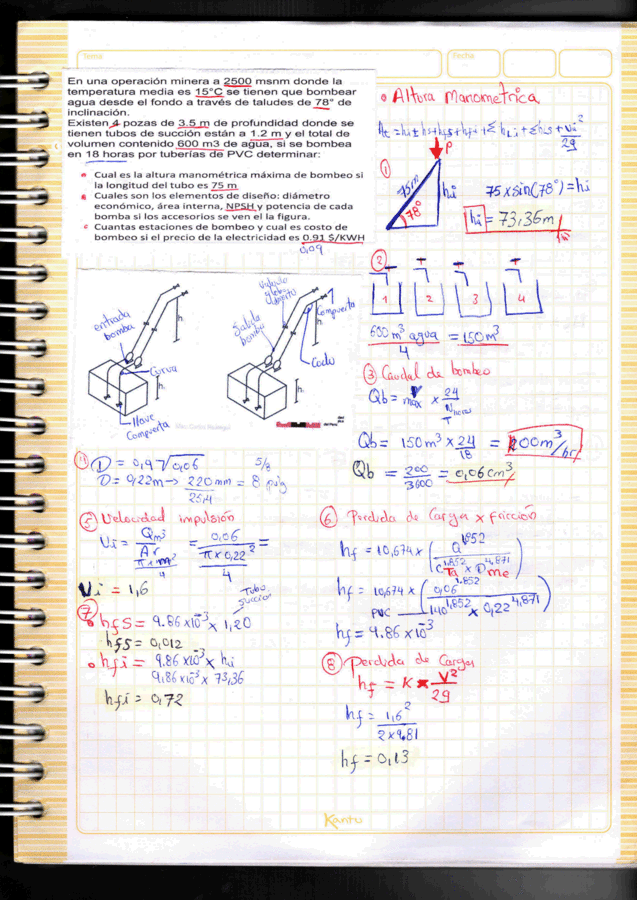 Tema
Fecha
En una operación minera a 2500 msnm donde la
temperatura media es 15°C se tienen que bombear
agua desde el fondo a través de taludes de 78° de
inclinación.
Existen 4 pozas de 3.5 m de profundidad donde se
tienen tubos de succión están a 1.2 m y el total de
volumen contenido 600 m3 de agua, si se bombea
en 18 horas por tuberías de PVC determinar:
a Cual es la altura manométrica máxima de bombeo si
la longitud del tubo es 75 m
b Cuales son los elementos de diseño: diámetro
económico, área interna, NPSH y potencia de cada
bomba si los accesorios se ven el la figura.
c Cuantas estaciones de bombeo y cual es costo de
bombeo si el precio de la electricidad es 0.91 $/KWH
0,09
• Altura Manometrica
P
① 75m
78°
hi
75 x sin(78°) = hi
hi = 73,36m
②
1 2 3 4
600m³ agua / 4 = 150m³
entrada
bomba
Curva
llave
Compuerta
h
valvula
globo
Compuerta
Salida
bomba
Codo
h
③ Caudal de bombeo
Qb = V max x 24 / N horas T
Qb = 150m³ x 24/18 = 200m³/hr
Qb = 200/3600 = 0,06cm³
④ D = 0,97√0,06
D = 0,22m → 220mm/25,4 = 8 5/8 pulg
⑤ Velocidad impulsión
Vi = Qm³ / Ar = 0,06 / (π x 0,22² / 4) =
Vi = 1,6
⑥ Perdida de Cargas x fricción
hf = 10,674 x (Q^1,852 / (C^1,852 x D^4,871))
Ta me
hf = 10,674 x (0,06^1,852 / (140^1,852 x 0,22^4,871))
PVC
hf = 9.86 x 10^-3
⑦ Tubo
succion
• hfs = 9.86 x 10^-3 x 1,20
hfs = 0,012
• hfi = 9.86 x 10^-3 x hi
9,86 x 10^-3 x 73,36
hfi = 0,72
⑧ Perdida de Cargas
hf = K x V²/2g
hf = 1,6² / 2x9.81
hf = 0,13
Kantu